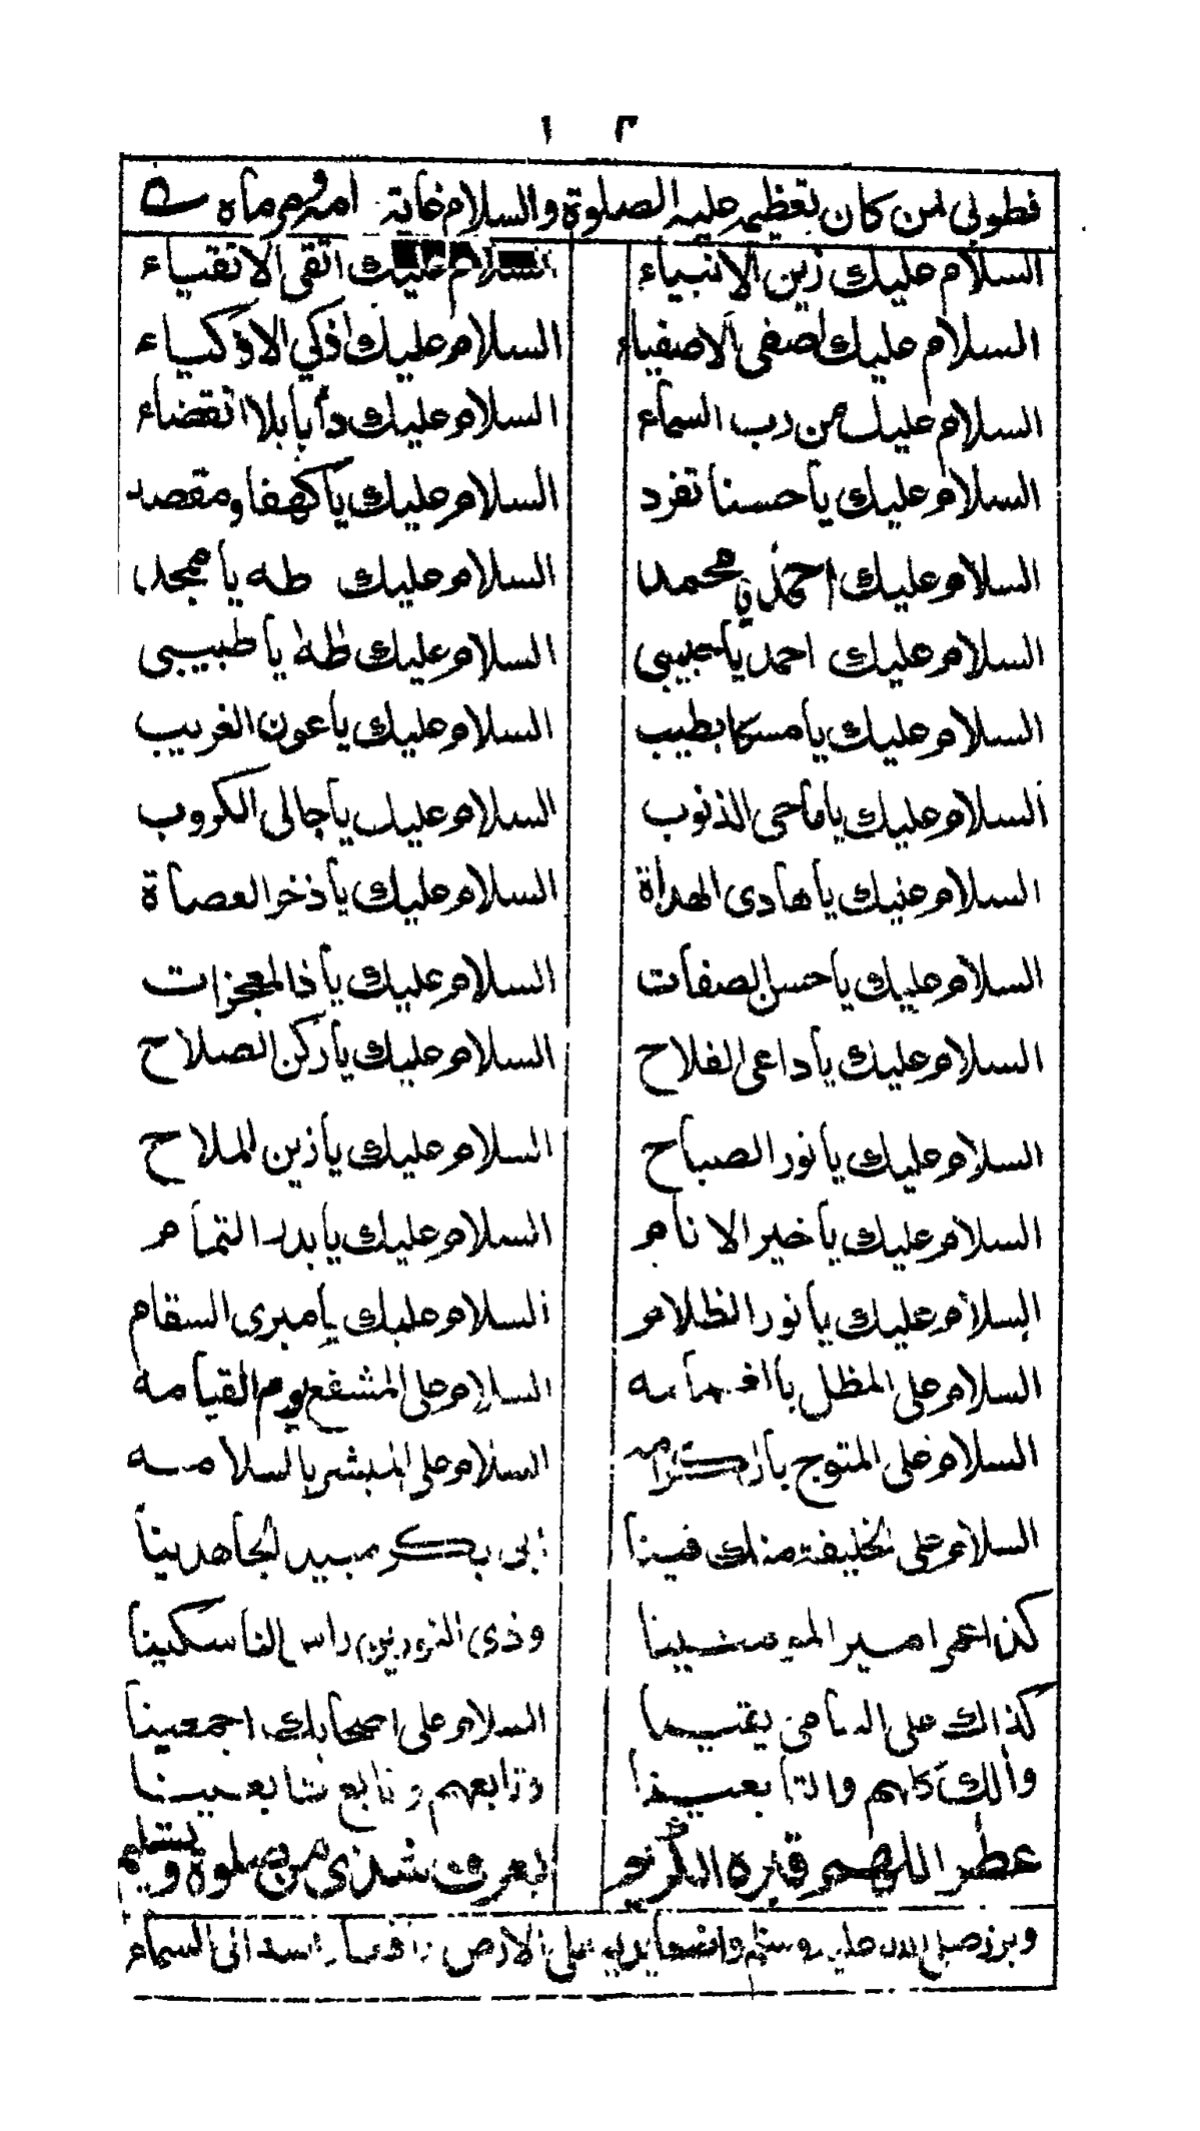 ١٢
فطوبى لمن كان تعظيمه عليه الصلوة والسلام غاية مرامه ومرماه
السلام عليك زين الانبياء السلام عليك اتقى الاتقياء
السلام عليك اصفى الاصفياء السلام عليك اذكي الاذكياء
السلام عليك من رب السماء السلام عليك دأبا بلا انقضاء
السلام عليك يا حسنا تفرد السلام عليك يا كهفا ومقصد
السلام عليك احمد يا محمد السلام عليك طه يا ممجد
السلام عليك احمد يا حبيبي السلام عليك طه يا طبيبي
السلام عليك يا مسكا بطيب السلام عليك يا عون الغريب
السلام عليك يا ماحى الذنوب السلام عليك يا جالى الكروب
السلام عليك يا هادى الهداة السلام عليك يا ذخر العصاة
السلام عليك يا حسن الصفات السلام عليك يا ذا المعجزات
السلام عليك يا داعى الفلاح السلام عليك يا ركن الصلاح
السلام عليك يا نور الصباح السلام عليك يا زين الملاح
السلام عليك يا خير الانام السلام عليك يا بدر التمام
السلام عليك يا نور الظلام السلام عليك يا مبرى السقام
السلام على المظلل بالغمامه السلام على المشفع يوم القيامه
السلام على المتوج بالكرامه السلام على المبشر بالسلامه
السلام على الخليفة منك فينا ابى بكر مبيد الجاهدينا
كذا عمر امير المومنينا وذى النورين راس الناسكينا
كذاك على السامى يقينا السلام على اصحابك اجمعينا
وآلك كلهم والتابعينا وتابعهم وتابع تابعينا
عطر اللهم قبره الكريم بعرف شذى من صلوة وتسليم
وبرز صلى الله عليه وسلم واضعا يديه على الارض رافعا راسه الى السماء